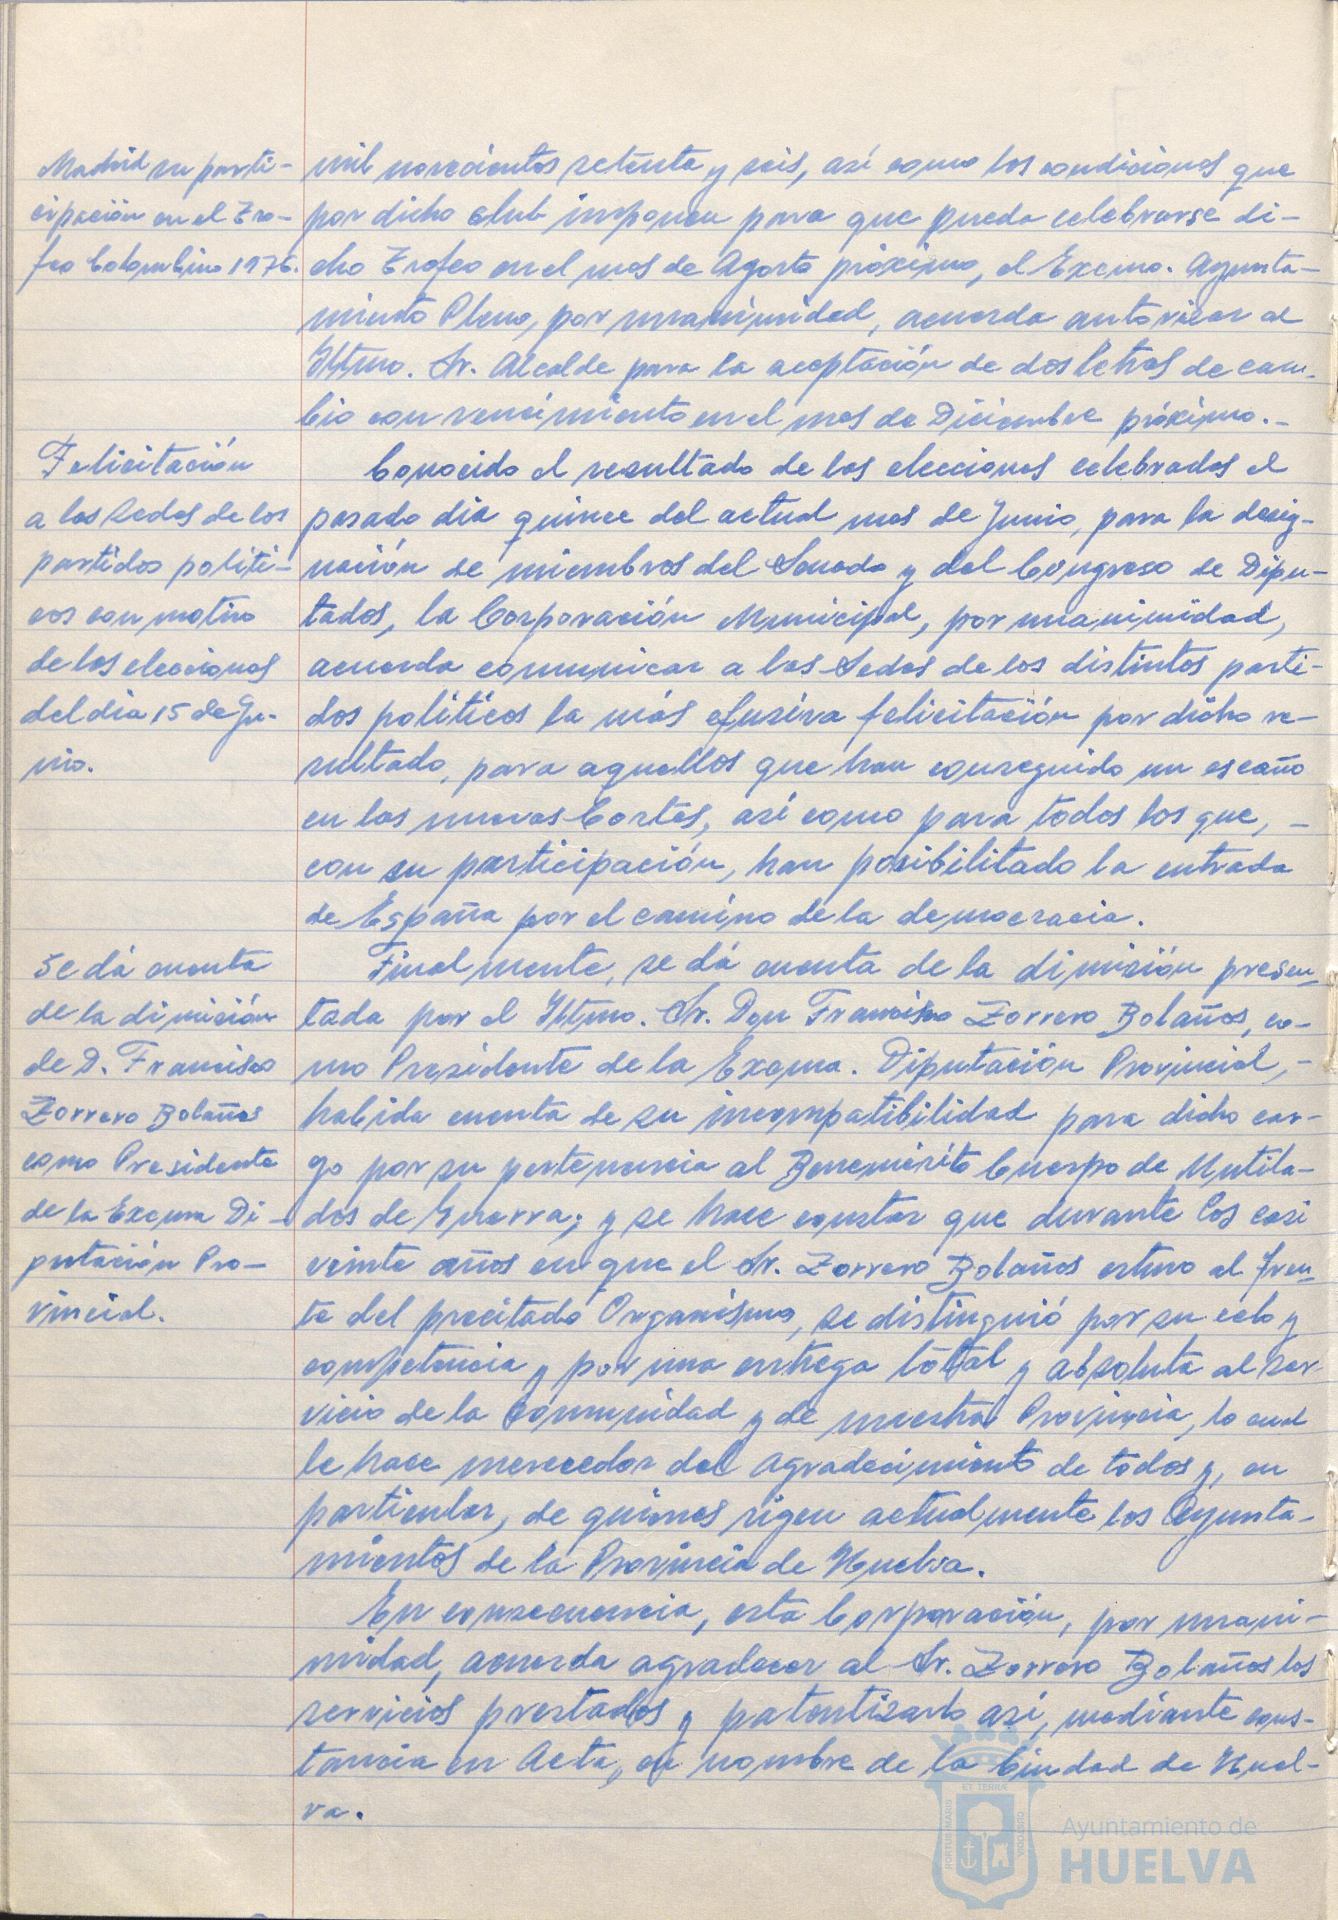 Madrid su parti-
cipación en el Tro-
feo Colombino 1976.
mil novecientos setenta y seis, así como las condiciones que
por dicho club imponen para que pueda celebrarse di-
cho Trofeo en el mes de Agosto próximo, el Excmo. Ayunta-
miento Pleno, por unanimidad, acuerda autorizar al
Iltmo. Sr. Alcalde para la aceptación de dos letras de cam-
bio con vencimiento en el mes de Diciembre próximo.-
Felicitación
a las Sedes de los
partidos políti-
cos con motivo
de las elecciones
del día 15 de Ju-
nio.
Conocido el resultado de las elecciones celebradas el
pasado día quince del actual mes de Junio, para la desig-
nación de miembros del Senado y del Congreso de Dipu-
tados, la Corporación Municipal, por unanimidad,
acuerda comunicar a las Sedes de los distintos parti-
dos políticos la más efusiva felicitación por dicho re-
sultado, para aquellos que han conseguido un escaño
en las nuevas Cortes, así como para todos los que, -
con su participación, han posibilitado la entrada
de España por el camino de la democracia.
Se dá cuenta
de la dimisión
de D. Francisco
Zorrero Bolaños
como Presidente
de la Excma Di-
putación Pro-
vincial.
Finalmente, se dá cuenta de la dimisión presen-
tada por el Iltmo. Sr. Don Francisco Zorrero Bolaños, co-
mo Presidente de la Excma. Diputación Provincial, -
habida cuenta de su incompatibilidad para dicho car-
go por su pertenencia al Benemérito Cuerpo de Mutila-
dos de Guerra; y se hace constar que durante los casi
veinte años en que el Sr. Zorrero Bolaños estuvo al fren-
te del precitado Organismo, se distinguió por su celo y
competencia y por una entrega total y absoluta al ser-
vicio de la Comunidad y de nuestra Provincia, lo cual
le hace merecedor del agradecimiento de todos y, en
particular, de quienes rigen actualmente los Ayunta-
mientos de la Provincia de Huelva.
En consecuencia, esta Corporación, por unani-
midad, acuerda agradecer al Sr. Zorrero Bolaños los
servicios prestados y patentizarlo así, mediante cons-
tancia en Acta, en nombre de la Ciudad de Huel-
va.
ET TERRÆ
PORTUS MARIS
CUSTODIA
Ayuntamiento de
HUELVA